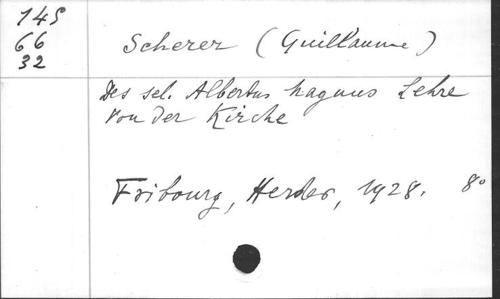 145
66
32
Scherer (Guillaume)
Des sel. Albertus Magnus Lehre
von der Kirche
Fribourg, Herder, 1928. 8°